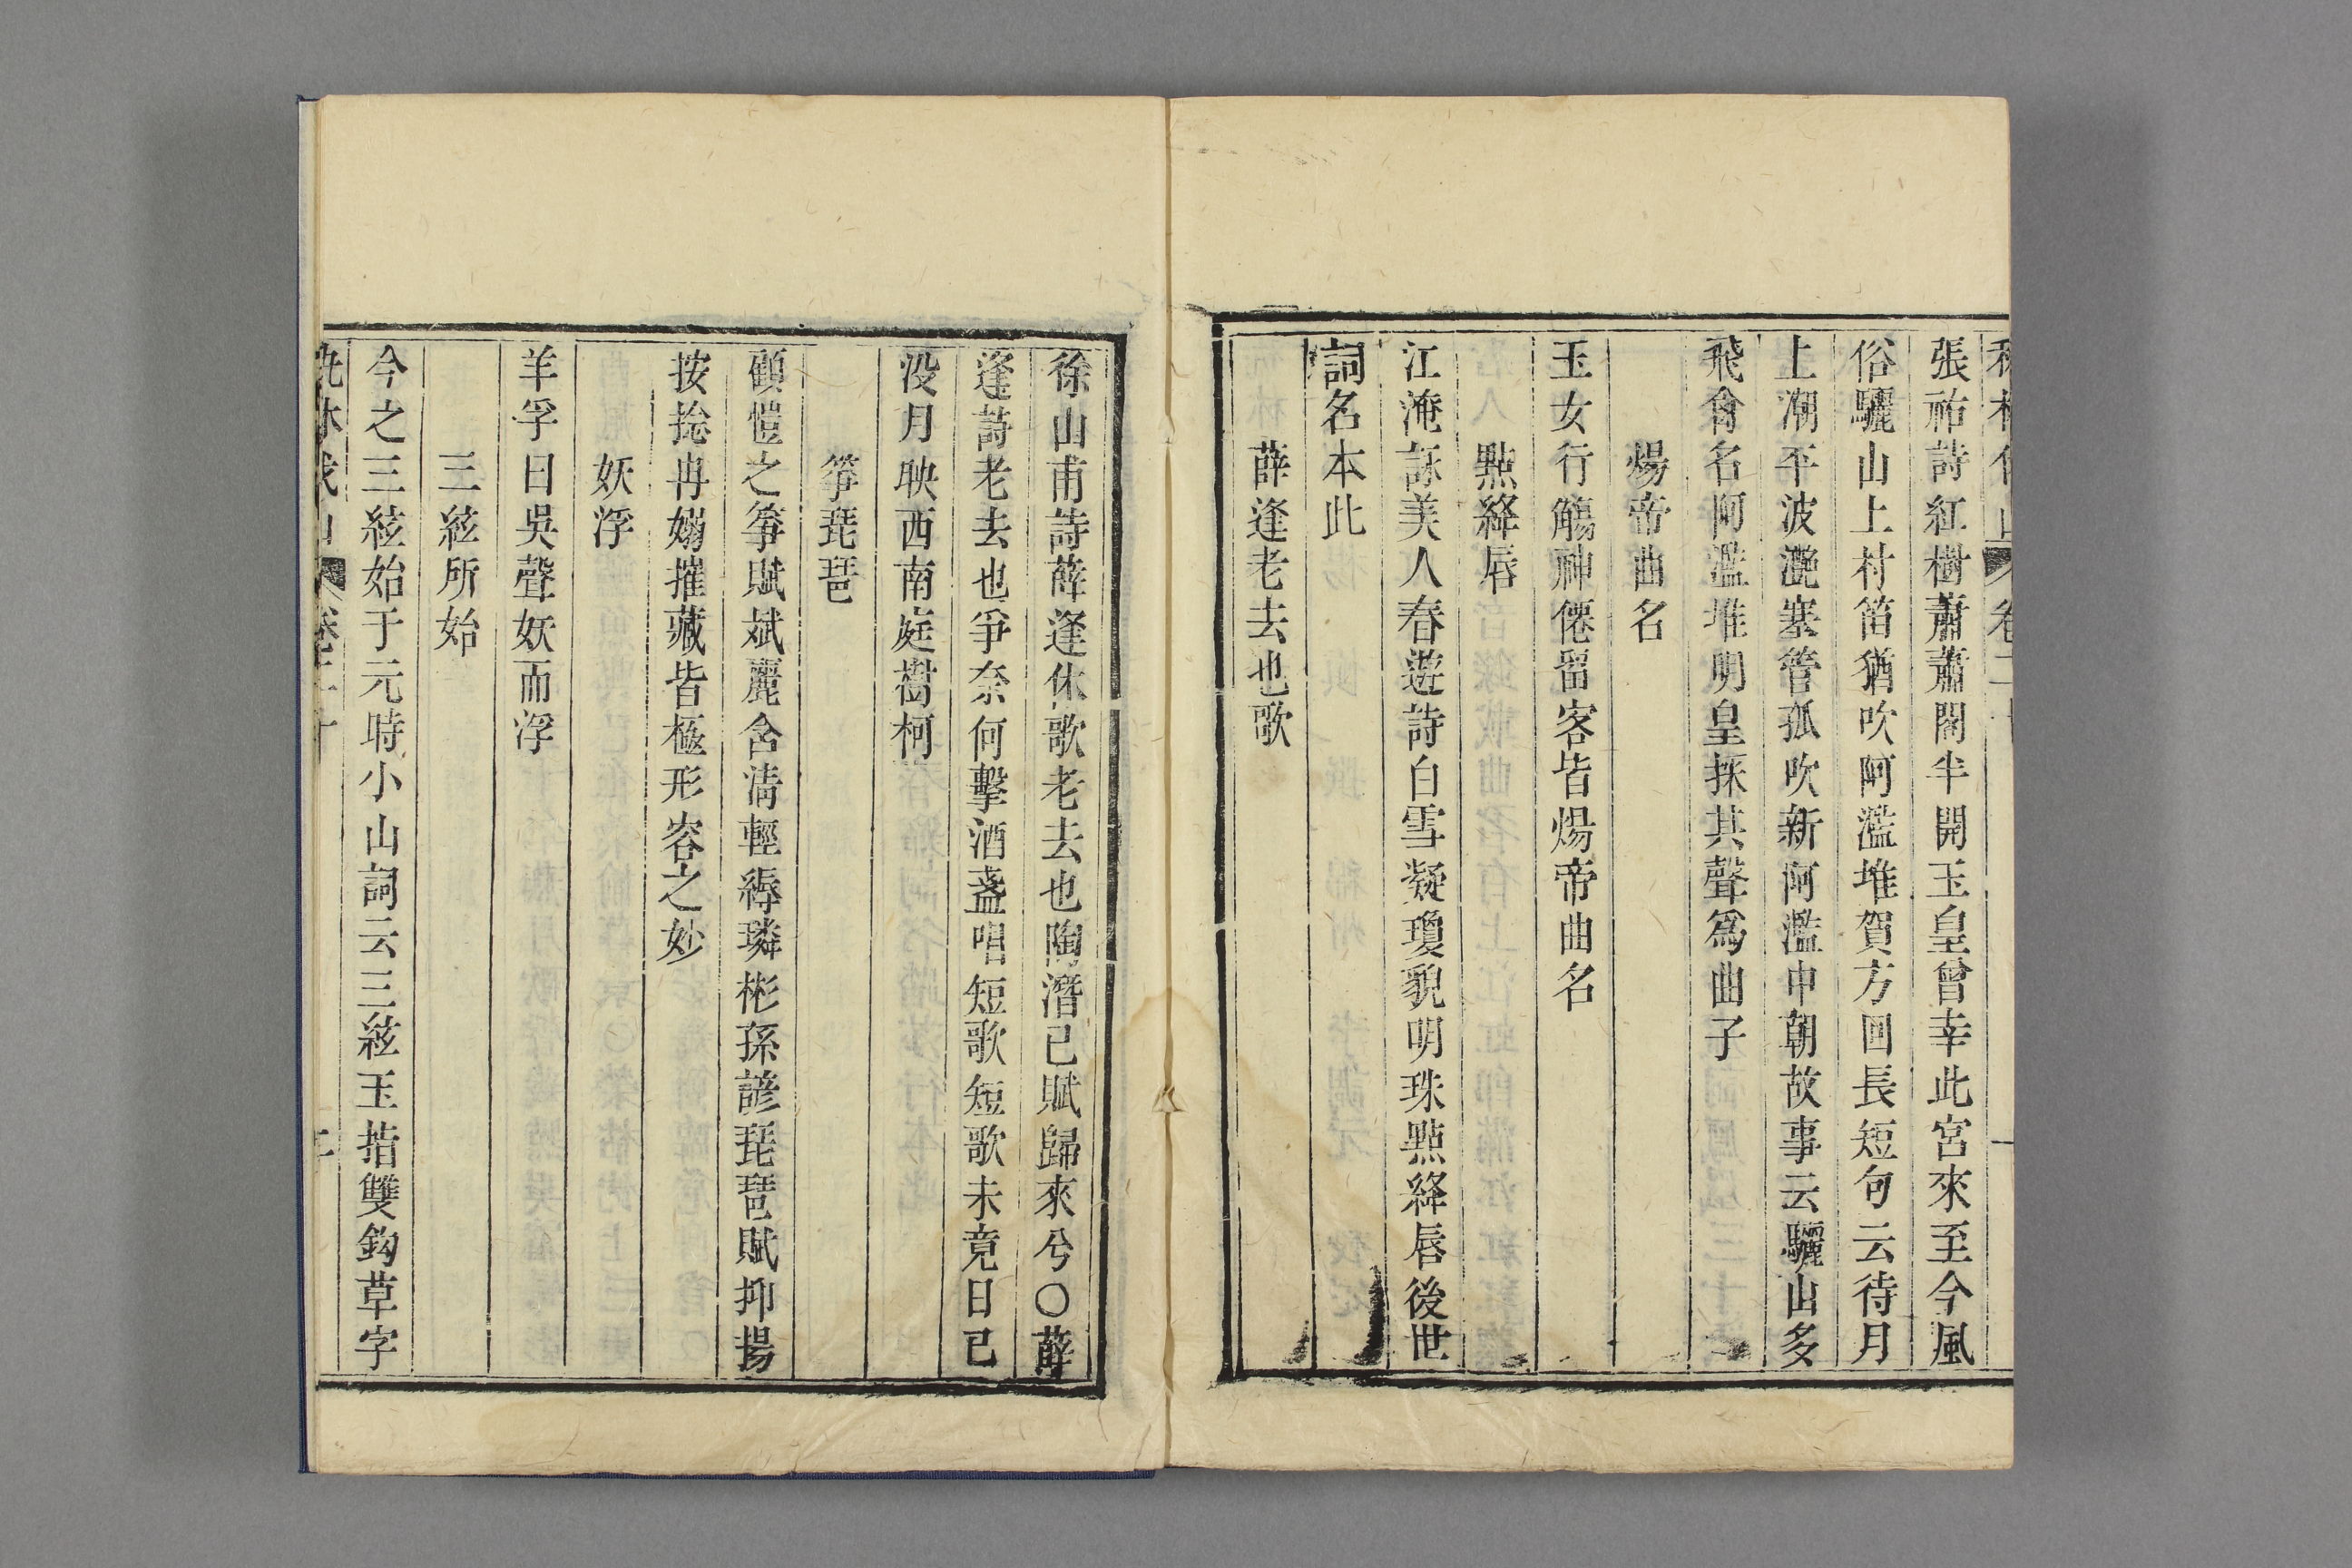 張祐詩紅樹蕭蕭閣半開玉皇曾幸此宮來至今風
俗驪山上村笛猶吹阿濫堆賀方回長短句云待月
上潮平波灧塞管孤吹新阿濫中朝故事云驪山多
飛禽名阿濫堆明皇採其聲爲曲子
煬帝曲名
玉女行觴神僊留客皆煬帝曲名
點絳唇
江淹詠美人春遊詩白雪凝瓊貌明珠㸃絳唇後世
詞名本此
薛逢老去也歌
徐山甫詩薛逢休歌老去也陶潛已賦歸來兮○薛
逢詩老去也爭奈何擊酒盞唱短歌短歌未竟日已
没月映西南庭樹柯
箏琵琶
顧愷之箏賦斌麗含淸輕縟璘彬孫諺琵琶賦抑揚
按捻冉嫋摧藏皆極形容之妙
妖浮
羊孚曰吳聲妖而浮
三絃所始
今之三絃始于元時小山詞云三絃玉指雙鈎草字